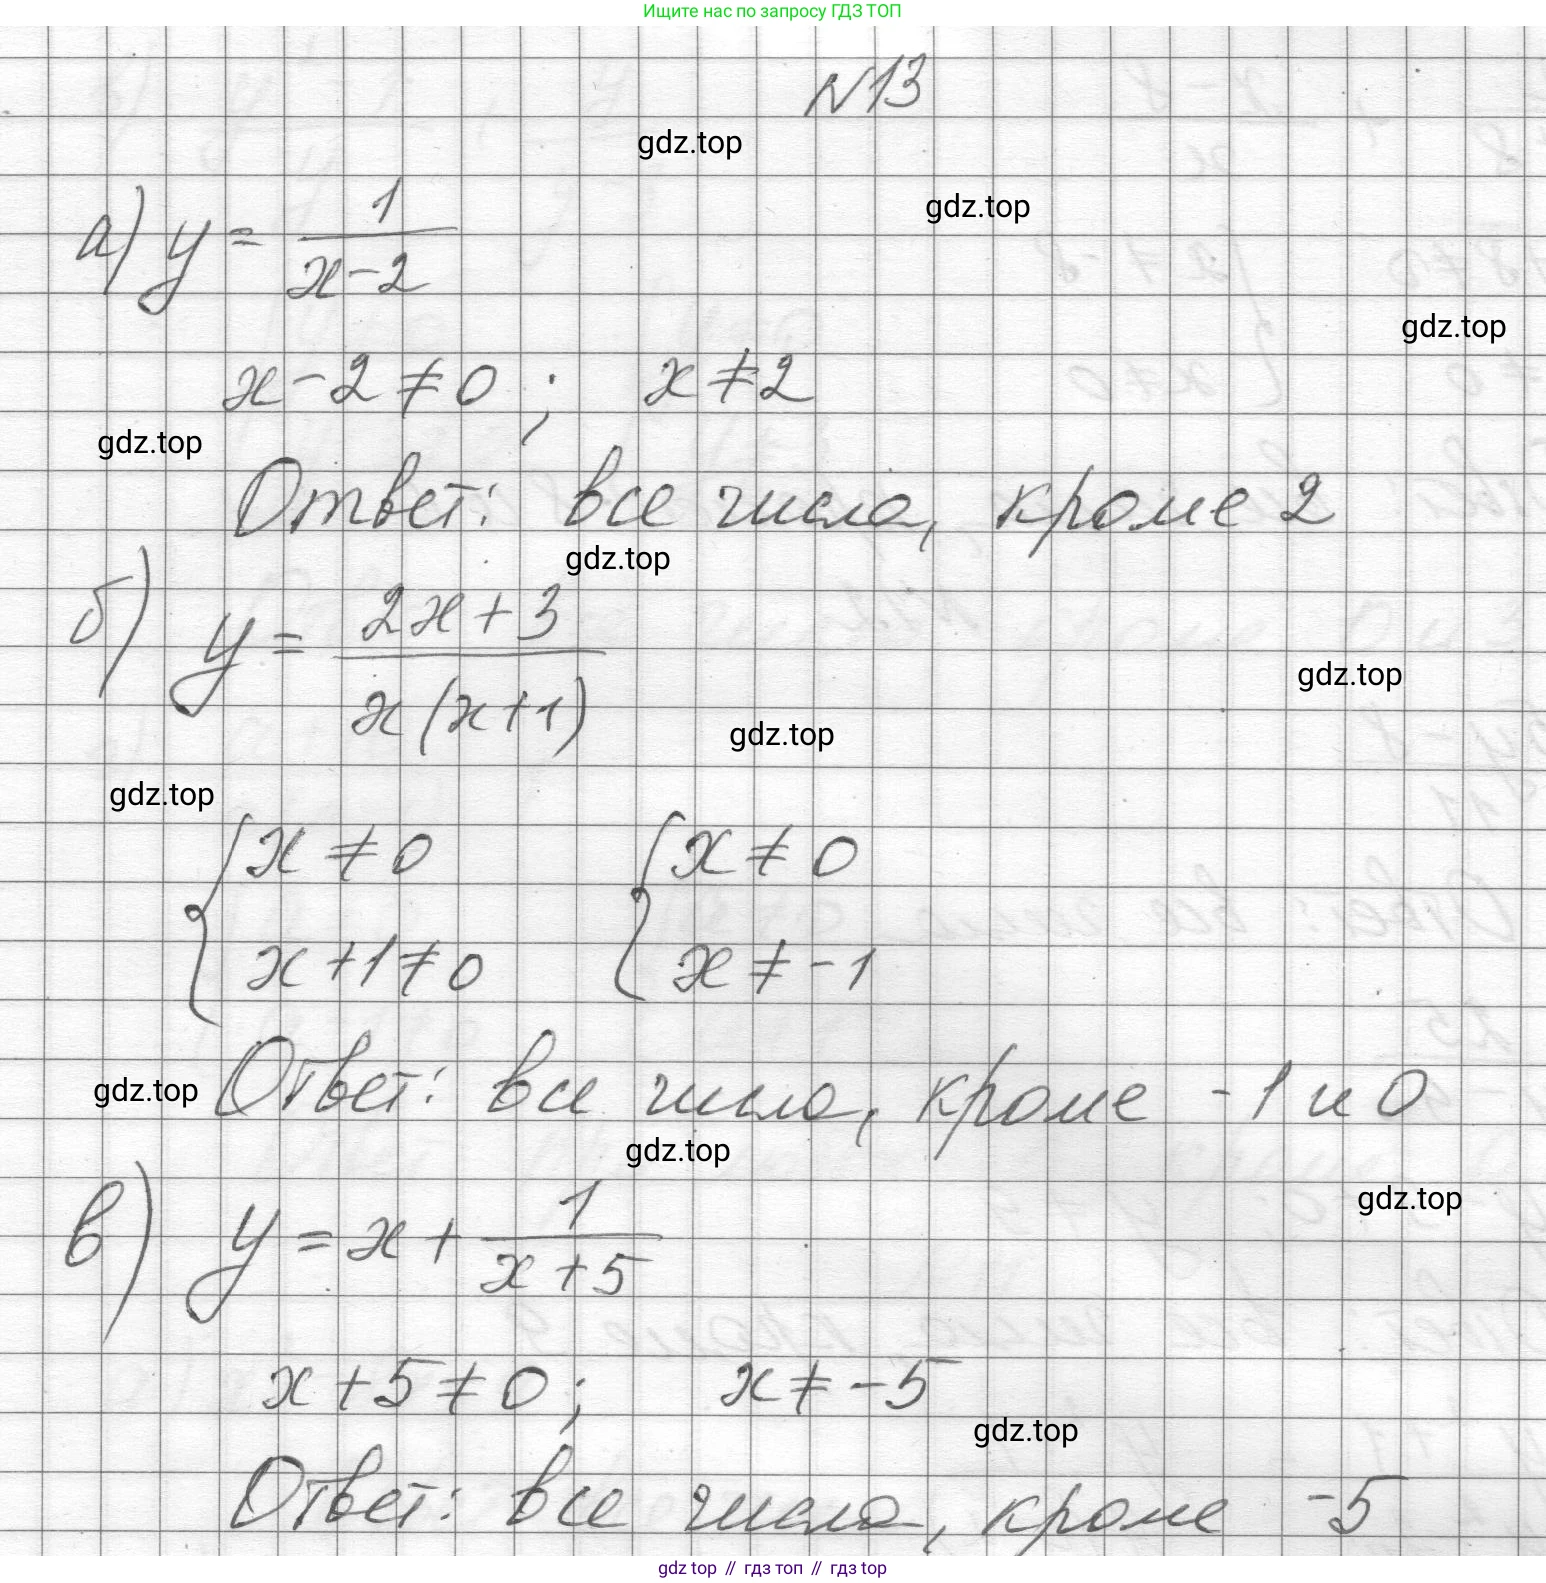 Ищите нас по запросу ГДЗ ТОП
N13
gdz.top
gdz.top
а) y = 1/(x-2)
gdz.top
x-2≠0; x≠2
gdz.top
Ответ: все числа, кроме 2
gdz.top
б) y = (2x+3)/(x(x+1))
gdz.top
gdz.top
gdz.top
{x≠0 {x≠0
x+1≠0 x≠-1
gdz.top
Ответ: все числа, кроме -1 и 0
gdz.top
gdz.top
в) y = x + 1/(x+5)
x+5≠0; x≠-5
gdz.top
Ответ: все числа, кроме -5
gdz top // гдз топ // гдз top